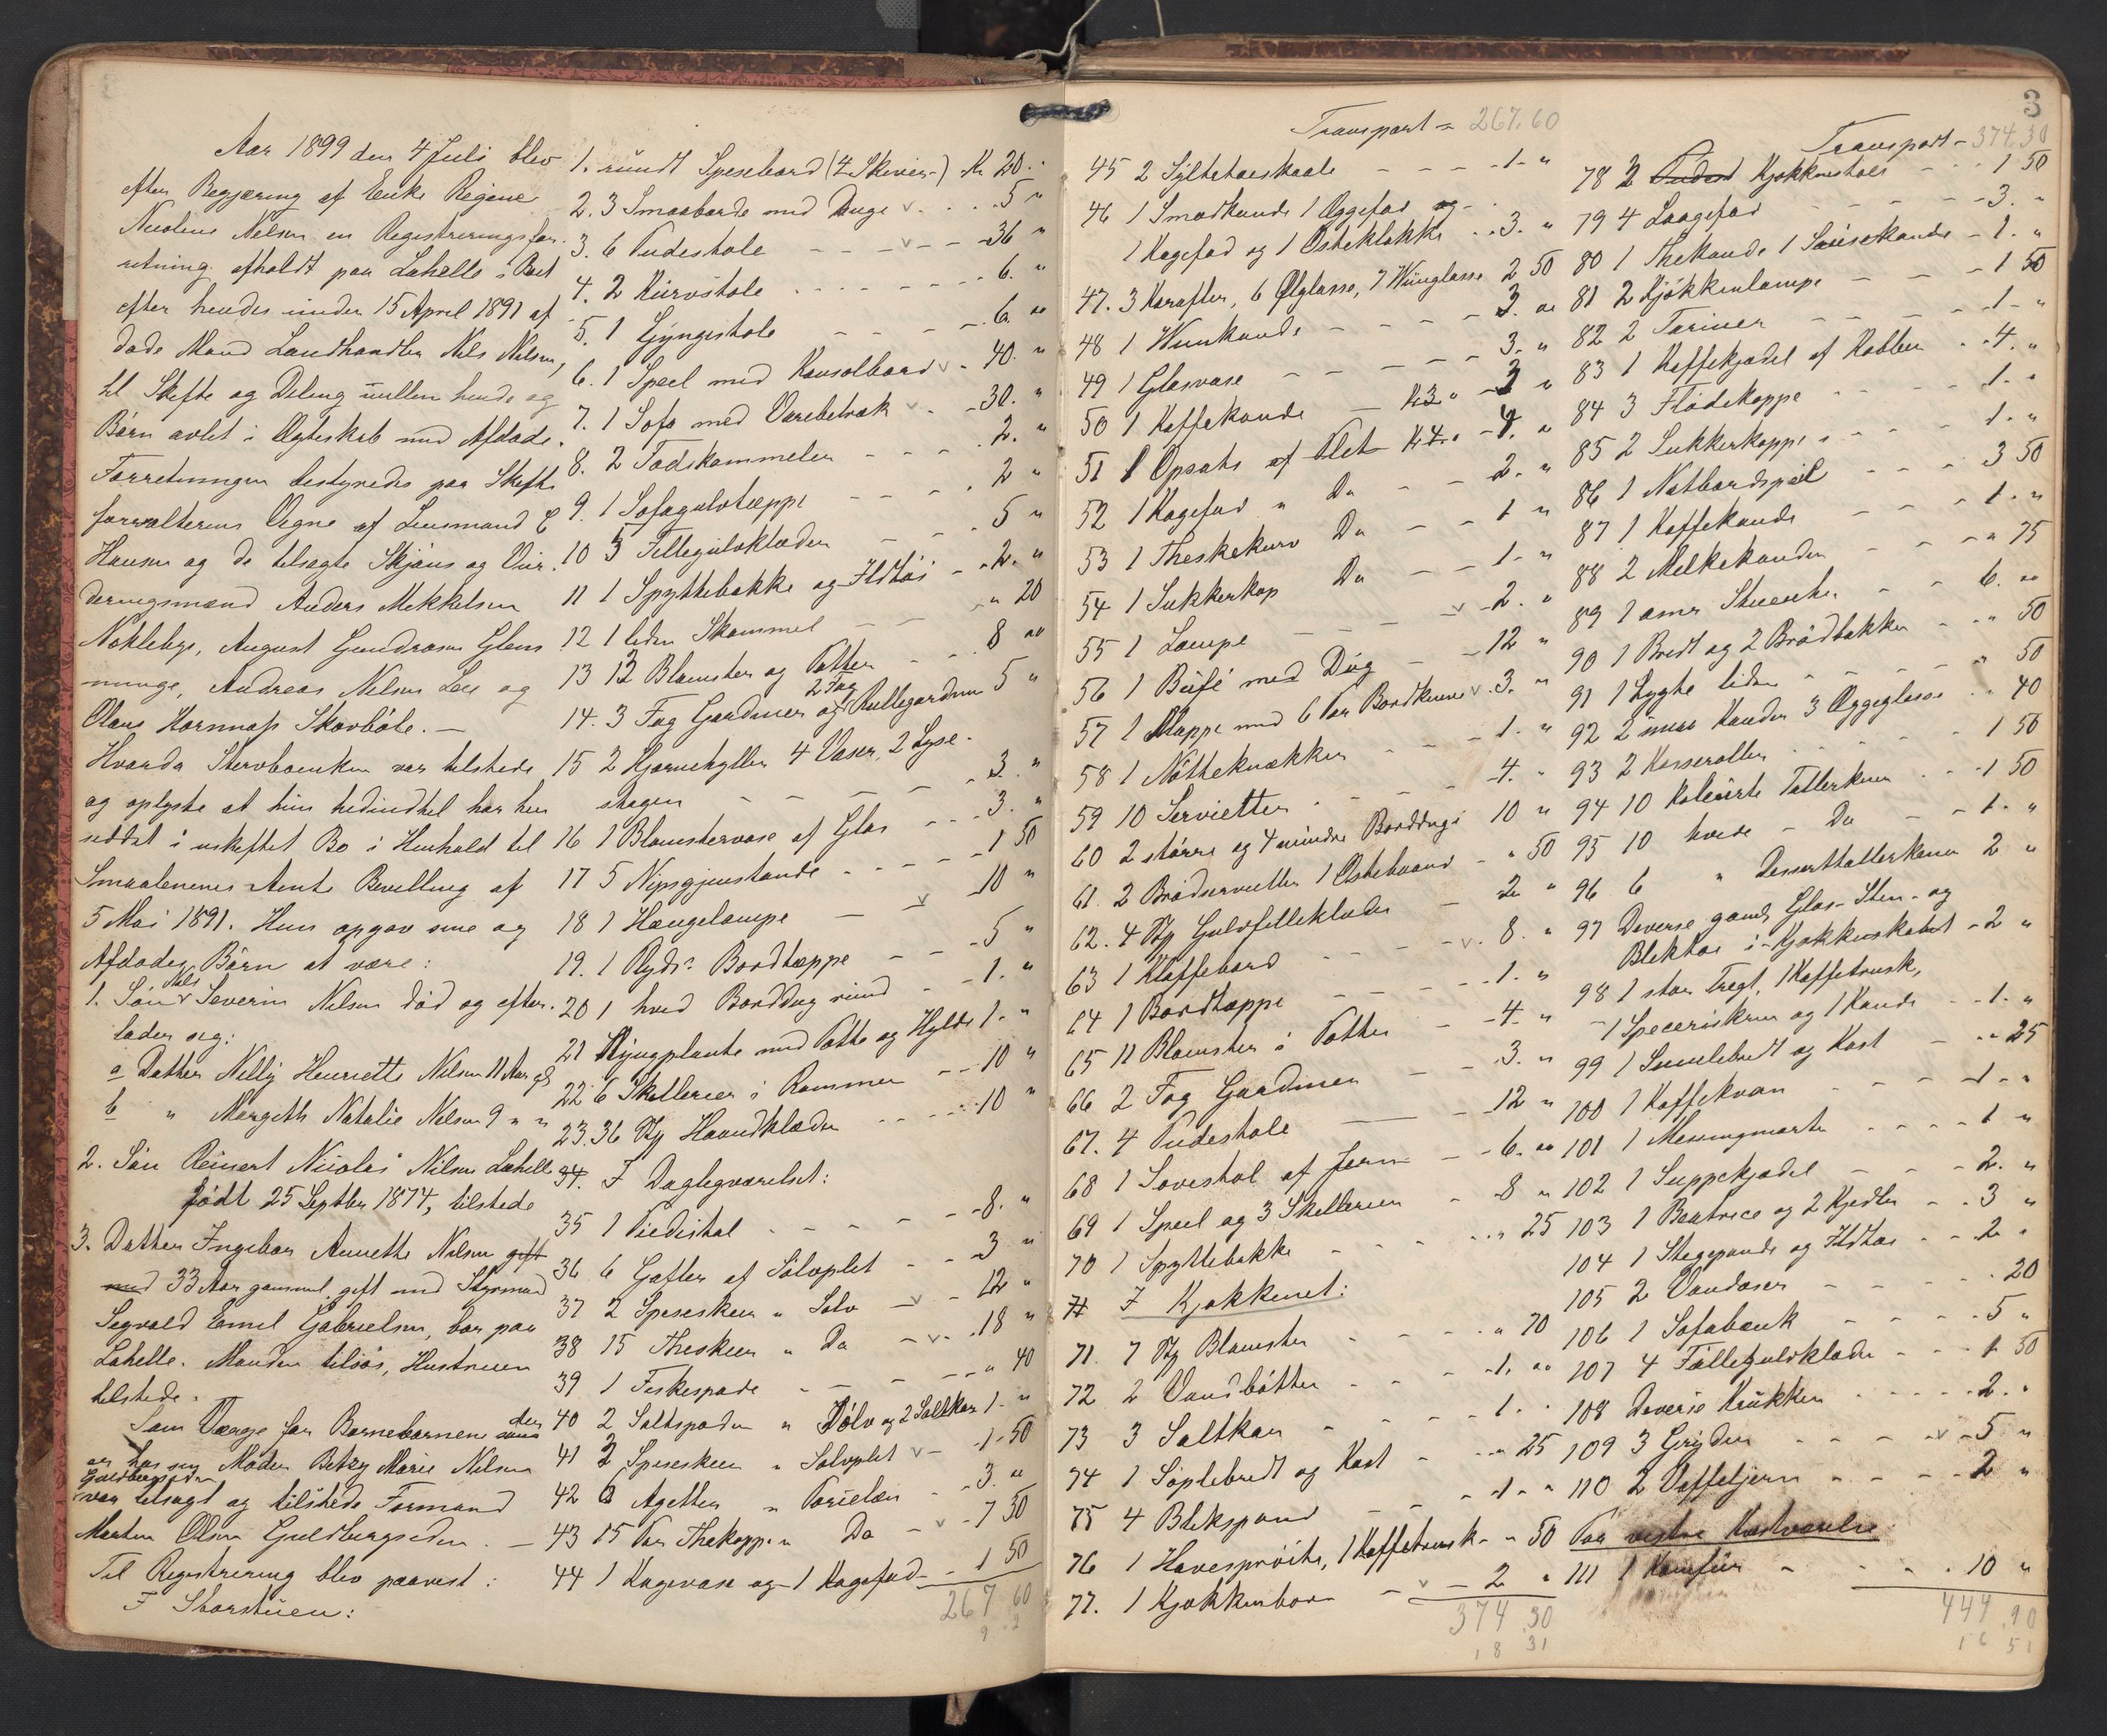 Aar 1899 den 4 Juli blev
efter Begjæring af Enke Regine
Nicoline Nilsen en Registreringsfor-
retning afholdt paa Lahelle i Boet
efter hendes under 15 April 1891 af
døde Mand Landhandler Nils Nilsen,
til Skifte og Deling mellem hende og
Børn avlet i Ægteskab med Afdøde.
Forretningen bestyredes paa Skifte
forvalterens Vegne af Lensmand E
Hansen og de tilsagte Skjøns og Vur-
deringsmænd Anders Mikkelsen
Nøkleby, August Gundrosen Glens
munge, Andreas Nilsen Lee og
Olaus Kornmap Skovbøle. —
Hvorda Stervboenken var tilstede
og oplyste at hun hidindtil har hen
siddet i uskiftet Bo i Henhold til
Smaalenenes Amts Bevilling af
5 Mai 1891. Hun opgav sine og
Afdødes Børn at være:
1. Søn Nils Severin Nilsen død og efter-
lader sig:
a Datter Nelly Henriette Nilsen 11 Aar gl
b " Margith Natalie Nilsen 9 " "
2. Søn Reinert Nicolai Nilsen Lahelle
født 25 Septber 1874, tilstede
3. Datter Ingebor Annette Nilsen gift
med 33 Aar gammel, gift med Styrmand
Segvald Emil Gabrielsen, bor paa
Lahelle. Manden tilsøs, Hustruen
tilstede.
Som Værge for Børnebørnene der
er hos sin Moder Betzy Marie Nilsen
Guldbergseden
var tilsagt og tilstede Formand
Morten Olsen Guldbergseden. —
Til Registrering blev paavist:
I Storstuen:
1. rundt Spisebord (4 Skiver) Kr 20 "
2. 3 Smaaborde med Duge v 5 "
3. 6 Pudestole v 36 "
4. 2 Kurvstole 6. "
5. 1 Gyngestole 6. "
6. 1 Speil med Konsolbord v 40. "
7. 1 Sofa med Varebetræk v 30. "
8. 2 Fodskammeler 2. "
9. 1 Sofagulvtæppe 2 "
10 5 Fillegulvklæder 5 "
11 1 Spyttebakke og Ildtøi 2. "
12 1 liden Skammel " 20
13 12 Blomster og Potter 8 "
2 Fag
14. 3 Fag Gardiner og Rullegardiner 5 "
15 2 Hjørnehyller 4 Vaser, 2 Lyse-
stager 3. "
16 1 Blomstervase af Glas 3. "
17 5 Nipsgjenstande 1 50
18 1 Hængelampe v 10 "
19. 1 Plyds Bordtæppe 5 "
20 1 hvid Borddug rund 1. "
21 Slyngplante med Potte og Hylde 1. "
22 6 Skillerier i Rammer 10 "
23. 36 Stk Haandklæder 10 "
34. I Dagligværelset:
35 1 Piedistal 8. "
36 6 Gafler af Sølvplet 3 "
37 2 Spiseskeer " Sølv v 12 "
38 15 Theskeer " Do v 18 "
39 1 Fiskespade " 40
40 2 Saltspader " Sølv og 2 Saltkar 1. "
41 2 Spiseskeer " Sølvplet v 1.50
42 6 Agetter " Porcelæn 3. "
43 15 Par Thekopper " Do v 7 50
44 1 Kagevase og 1 Kagefad 1 50
267 60
9 2
Transport = 267.60
45 2 Syltetøiskaale 1. "
46 1 Smørkande 1 Æggefad og
1 Kagefad og 1 Osteklokke 3. "
47. 3 Karafler, 6 Ølglasse, 7 Viinglasse 2 50
48 1 Vinkande 3. "
49 1 Glasvase 3. "
50 1 Kaffekande Kr 3 " 3 "
51 1 Opsats af Plet Kr 4. "
52 1 Kagefad " Do 2. "
53 1 Theskekurv Do 1 "
54 1 Sukkerkop Do 1. "
55 1 Lampe v 2. "
56 1 Büfé med Dug 12 "
57 1 Mappe med 6 Par Bordknive v 3. "
58 1 Nøtteknækker 1. "
59 10 Servietter 4. "
60 2 større og 4 mindre Bordduge 10 "
61. 2 Brødservietter 1 Ostebaand " 50
62. 4 Stk Gulvfilleklæder 2 "
63 1 Klaffebord v. 8. "
64 1 Bordtæppe 1. "
65 11 Blomster i Potter 4. "
66 2 Fag Gardiner 3. "
67. 4 Pudestole 12 "
68 1 Sovestol af Jern 6. "
69 1 Speil og 3 Skillerier 8 "
70 1 Spyttebakke " 25
71 I Kjøkkenet:
71. 7 Stk Blomster " 70
72 2 Vandbøtter 1. "
73 3 Saltkar 1. "
74 1 Søplebredt og Kost " 25
75 4 Blikspand 1. "
76 1 Havesprøite, 1 Kaffetrusk " 50
77. 1 Kjøkkenbord v 2 "
374 30
1 8 31
3
Transport = 374.30
78 2 Kjøkkenstole 1 50
79 4 Laagefad 3. "
80 1 Thekande 1 Sausekande 1. "
81 2 Kjøkkenlampe 1 50
82 2 Teriner 1. "
83 1 Kaffekjedel af Kobber 4. "
84 3 Flødekoppe 1. "
85 2 Sukkerkopper 1. "
86 1 Natbordspeil 3 50
87 1 Kaffekande 1. "
88 2 Melkekander " 75
89 1 amr Stueuhr 6. "
90 1 Bredt og 2 Brødbakker " 50
91 1 Lygte liden " 50
92 2 smaa Kander 3 Æggeglasse " 40
93 2 Kasseroller 1 50
94 10 Kolørte Tallerkener 1 50
95 10 hvide - Do 1. "
96 6 " Desserttallerkener 2 "
97 Diverse gamt Glas- Sten- og
Bliktøi i Kjøkkenskabet 2 "
98 1 stor Tregt, 1 Kaffetrusk,
1 Speceriskrin og 1 Kande 1. "
99 1 Smulebredt og Kost " 25
100 1 Kaffekvæn 1. "
101 1 Messingmorter 1 "
102 1 Suppekjedel 2. "
103 1 Beatrice og 2 Kjedler 3 "
104 1 Stegepande og Ildtøi 2 "
105 2 Vandøser " 20
106 1 Sofabænk 5 "
107 4 Fillegulvklæder 1 50
108 Diverse Krukker 2. "
109 3 Gryder v 5 "
110 2 Vaffeljern 2 "
Paa vestre Kvistværelse
111 1 Komfür 10 "
444.90
1 6 51